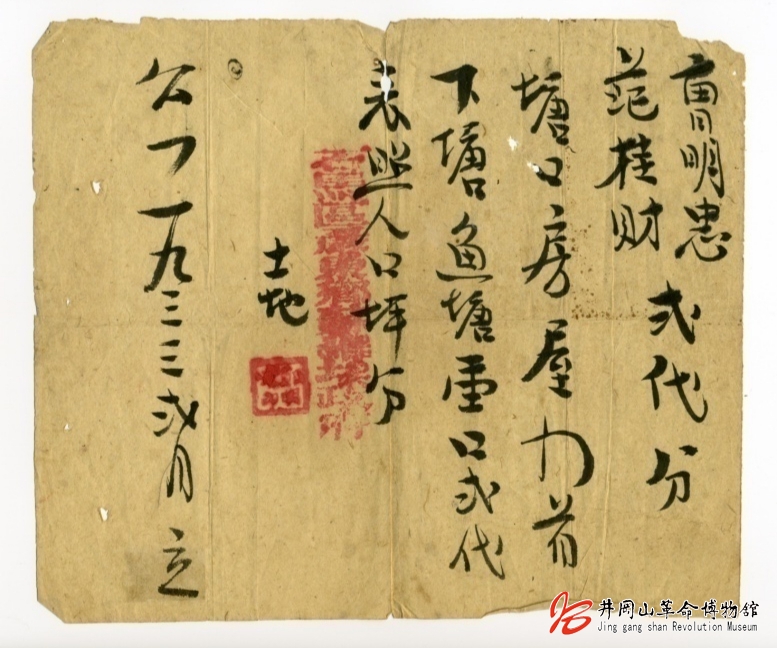 明忠
范桂财
弍代分
塘口房屋
下塘鱼塘壹口弍代
照人口坪分
土地
公一九三三弍月立
井冈山革命博物馆
Jing gang shan Revolution Museum